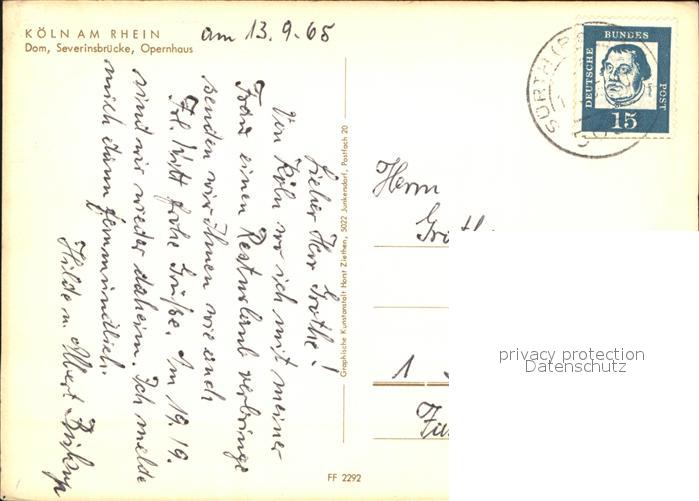 KÖLN AM RHEIN
Dom, Severinsbrücke, Opernhaus
am 13.9.65
Lieber Herr Grothe!
Von Köln wo ich mit meiner
Frau einen Resturlaub verbringe
senden wir Ihnen wie auch
Frl. Witt frohe Grüße. Am 19.9.
sind wir wieder daheim. Ich melde
mich dann fernmündlich.
Hilde u. Albert
Graphische Kunstanstalt Horst Ziethen, 5022 Junkersdorf, Postfach 20
FF 2292
DEUTSCHE BUNDES POST
15
SÜRTH
Herrn
1
privacy protection
Datenschutz